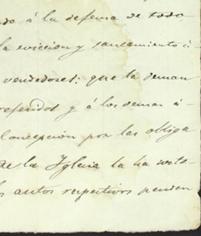 do á la defensa de todo
la eviccion y saneamiento á
vendedores: que la deman
referidos y á los demas á
Concepción por las obliga
de la Iglesia la ha
los autos respectivos penden